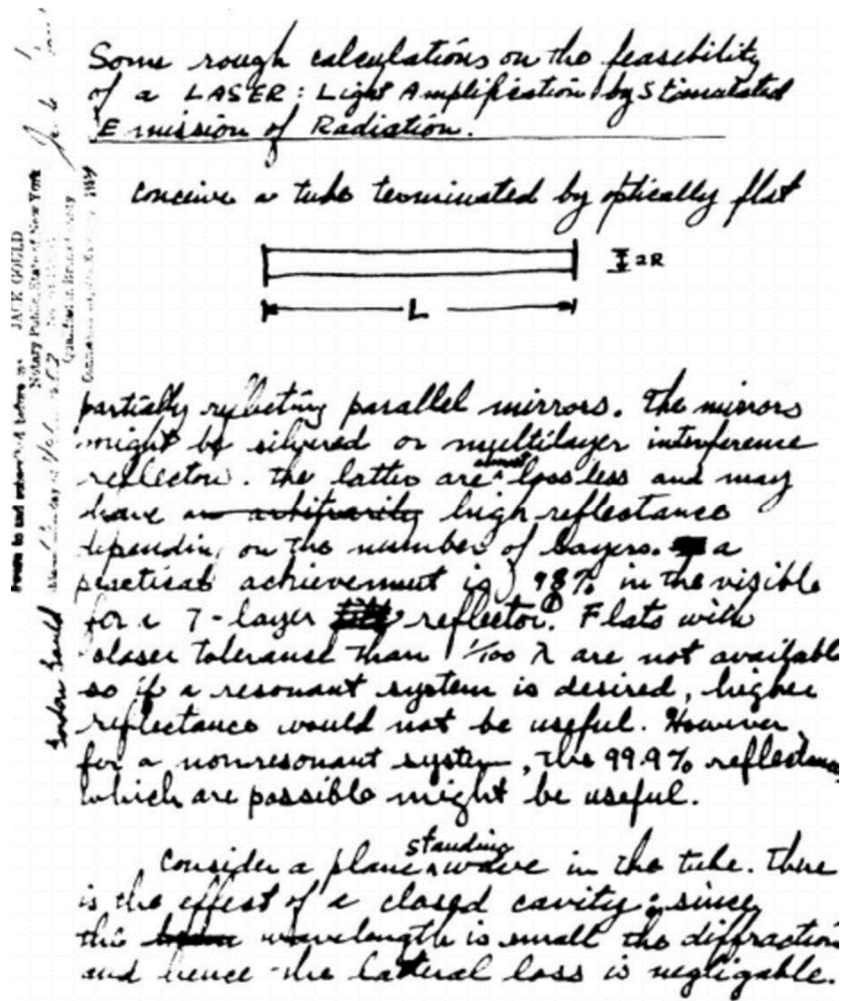 Some rough calculations on the feasibility
of a LASER: Light Amplification by Stimulated
Emission of Radiation.
conceive a tube terminated by optically flat
2R
L
partially reflecting parallel mirrors. The mirrors
might be silvered or multilayer interference
reflectors. The latter are almost lossless and may
have an arbitrarily high reflectance
depending on the number of layers. a
practical achievement is 98% in the visible
for a 7-layer reflector. Flats with
closer tolerance than 1/100 λ are not available
so if a resonant system is desired, higher
reflectance would not be useful. However,
for a nonresonant system, the 99.9% reflectance
which are possible might be useful.
Consider a plane standing wave in the tube. There
is the effect of a closed cavity; since
the wavelength is small the diffraction
and hence the lateral loss is negligable.
JACK GOULD
Notary Public, State of New York
Sworn to and subscribed before me
Gordon Gould